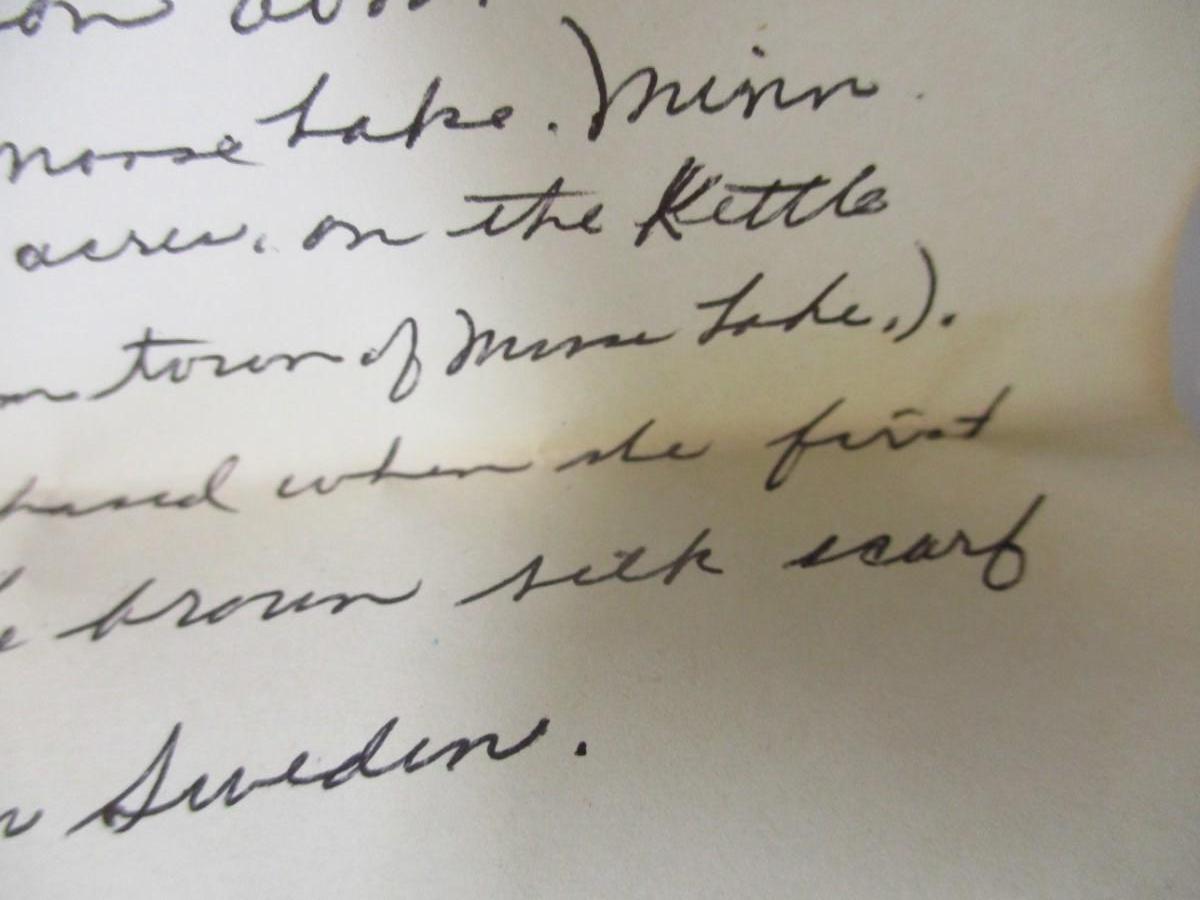 on
Moose Lake. Minn.
acres, on the Kettle
town of Moose Lake.).
when she first
brown silk scarf
Sweden.